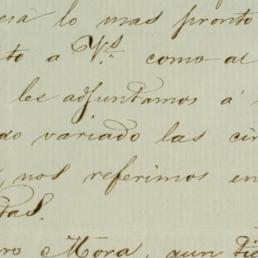 erá lo mas pronto
to a V.s como al
les adjuntamos á
do variado las cir
nos referimos en
das.
ro Mora, aun